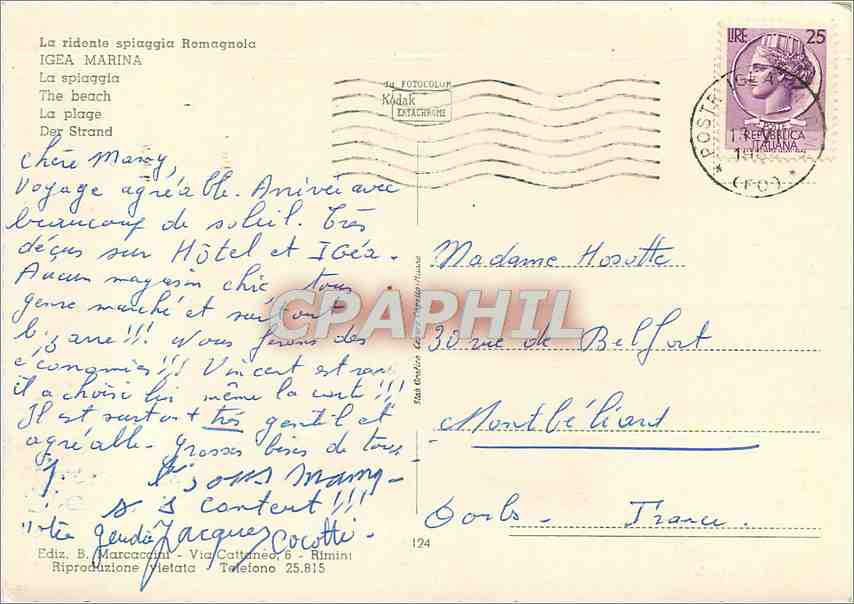 La ridente spiaggia Romagnola
IGEA MARINA
La spiaggia
The beach
La plage
Der Strand
FOTOCOLOR
Kodak
EKTACHROME
LIRE 25
REPUBBLICA
ITALIANA
POSTE IGEA
(FO)
Chère Mamy,
Voyage agréable. Arrivée avec
beaucoup de soleil. Très
déçus sur Hôtel et IGéa.
Aucun magasin chic tous
genre marché et surtout
bizarre!!! Nous ferons des
économies!!! Vincent est
il a choisi lui même la carte!!!
Il est surtout très gentil et
agréable. grosses bises de tous
Mamy
content!!!
Jacques Cocotte.
Madame Hosotte
30 rue de Belfort
Montbéliard
Doubs. France.
CPAPHIL
Ediz. B. Marcaccini - Via Cattaneo, 6 - Rimini
Riproduzione vietata Telefono 25.815
124